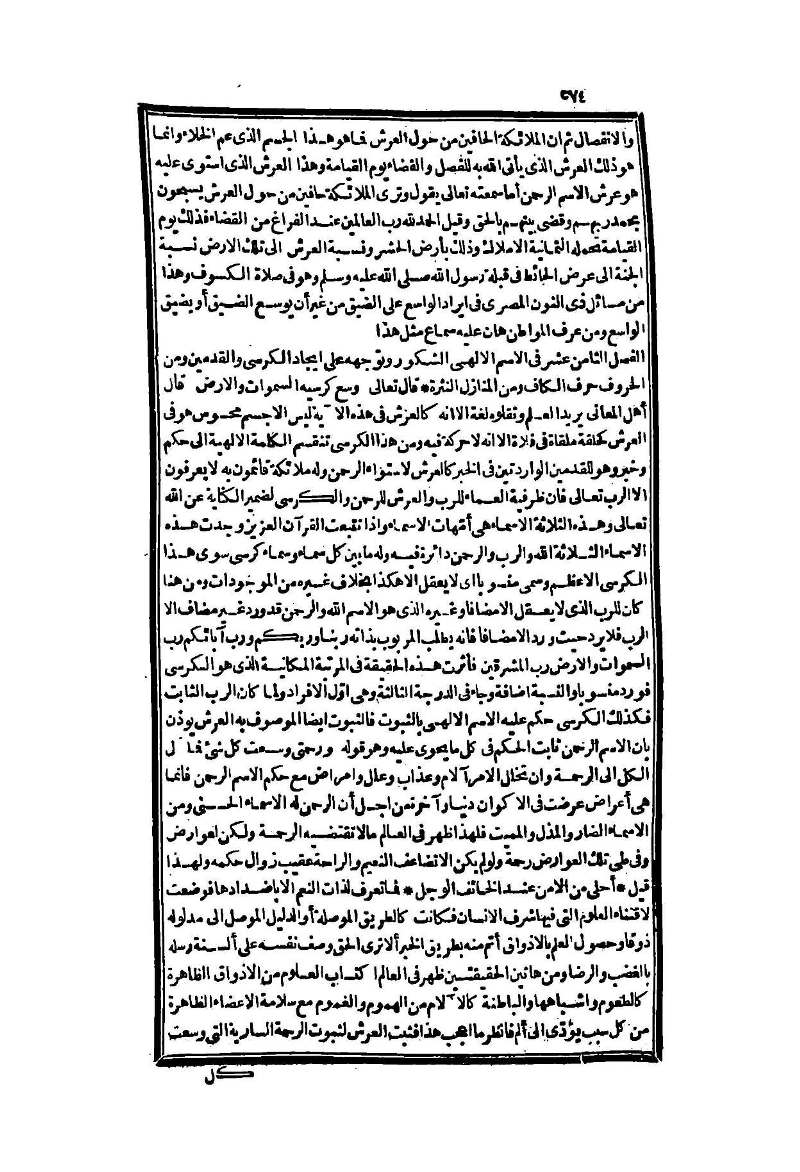 ٢٧٤
والانفصال ثم ان الملائكة الحافين من حول العرش فما هو هذا الجسم الذى عم الخلاء وانما
هو ذلك العرش الذى يأتى الله به للفصل والقضاء يوم القيامة وهذا العرش الذى استوى عليه
هو عرش الاسم الرحمن أما سمعته تعالى يقول وترى الملائكة حافين من حول العرش يسبحون
بحمد ربهم وقضى بينهم بالحق وقيل الحمد لله رب العالمين عند الفراغ من القضاء فذلك يوم
القيامة تحمله الثمانية الاملاك وذلك بأرض الحشر ونسبة العرش الى تلك الارض نسبة
الجنة الى عرض الحائط فى قبلة رسول الله صلى الله عليه وسلم وهو فى صلاة الكسوف وهذا
من مسائل ذى النون المصرى فى ايراد الواسع على الضيق من غير أن يوسع الضيق أو يضيق
الواسع ومن عرف المواطن هان عليه سماع مثل هذا
الفصل الثامن عشر فى الاسم الالهى الشكور وتوجهه على ايجاد الكرسى والقدمين ومن
الحروف حرف الكاف ومن المنازل النثرة * قال تعالى وسع كرسيه السموات والارض قال
أهل المعانى يريد العلم ونقلوه لغة الا انه كالعرش فى هذه الآية ليس الا جسم محسوس هو فى
العرش كحلقة ملقاة فى فلاة الا انه لا حركة فيه ومن هذا الكرسى تنقسم الكلمة الالهية الى حكم
وخبر وهو للقدمين الواردتين فى الخبر كالعرش لاستواء الرحمن وله ملائكة قائمون به لا يعرفون
الا الرب تعالى فان ظرفية العماء للرب والعرش للرحمن والكرسى لضمير الكناية عن الله
تعالى وهذه الثلاثة الاسماء هى أمهات الاسماء واذا تتبعت القرآن العزيز وجدت هذه
الاسماء الثلاثة الله والرب والرحمن دائرة فيه وله ما بين كل سماء وسماء كرسى سوى هذا
الكرسى الاعظم وسمى منسوبا اى لا يعقل الا هكذا بخلاف غيره من الموجودات ومن هنا
كان للرب الذى لا يعقل الا مضافا وغيره الذى هو الاسم الله والرحمن قد ورد غير مضاف الا
الرب فلا يرد حيث ورد الا مضافا فانه يطلب المربوب بذاته ربنا وربكم ورب آبائكم رب
السموات والارض رب المشرقين فأثرت هذه الحقيقة فى المرتبة المكانية الذى هو الكرسى
فورد منسوبا والنسبة اضافة وجاء فى الدرجة الثالثة وهى اول الافراد ولما كان الرب الثابت
فكذلك الكرسى حكم عليه الاسم الالهى بالثبوت فالثبوت ايضا الموصوف به العرش يوذن
بان الاسم الرحمن ثابت الحكم فى كل ما يحوى عليه وهو قوله ورحمتى وسعت كل شئ فمآل
الكل الى الرحمة وان تخلل الامر آلام وعذاب وعلل وامراض مع حكم الاسم الرحمن فانما
هى أعراض عرضت فى الاكوان دنيا وآخرة من اجل أن الرحمن له الاسماء الحسنى ومن
الاسماء الضار والمذل والمميت فلهذا ظهر فى العالم مالا تقتضيه الرحمة ولكن لعوارض
وفى طى تلك العوارض رحمة ولو لم يكن الا تضاعف النعيم والراحة عقيب زوال حكمه ولهذا
قيل * أحلى من الامن عند الخائف الوجل * فما تعرف لذات النعم الا باضدادها فوضعت
لاقتناء العلوم التى فيها شرف الانسان فكانت كالطريق الموصلة أو الدليل الموصل الى مدلوله
ذوقا وحصول العلم بالاذواق أتم منه بطريق الخبر ألا ترى الحق وصف نفسه على ألسنة رسله
بالغضب والرضا ومن هاتين الحقيقتين ظهر فى العالم اكتساب العلوم من الاذواق الظاهرة
كالطعوم واشباهها والباطنة كالآلام من الهموم والغموم مع سلامة الاعضاء الظاهرة
من كل سبب يؤدى الى ألم فانظر ما اعجب هذا فثبت العرش لثبوت الرحمة السارية التى وسعت
كل